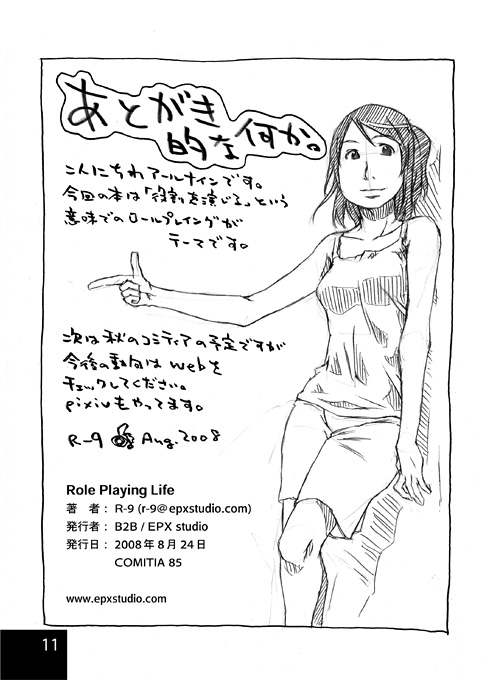 あとがき
的な何か。
こんにちわアールナインです。
今回の本は「役割を演じる」という
意味でのロールプレイングが
テーマです。
次は秋のコミティアの予定ですが
今後の動向はwebを
チェックしてください。
pixivもやってます。
R-9 Aug.2008
Role Playing Life
著 者： R-9 (r-9@epxstudio.com)
発行者： B2B / EPX studio
発行日： 2008年8月24日
COMITIA 85
www.epxstudio.com
11